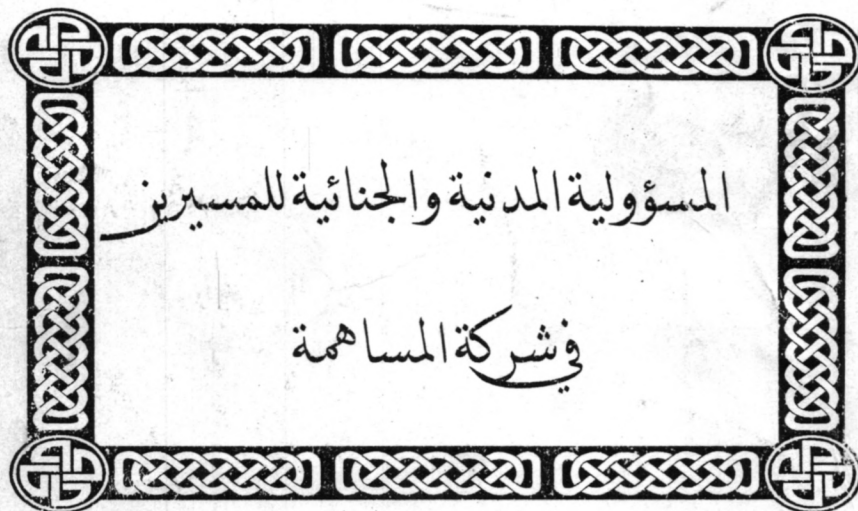 المسؤولية المدنية والجنائية للمسيرين
في شركة المساهمة